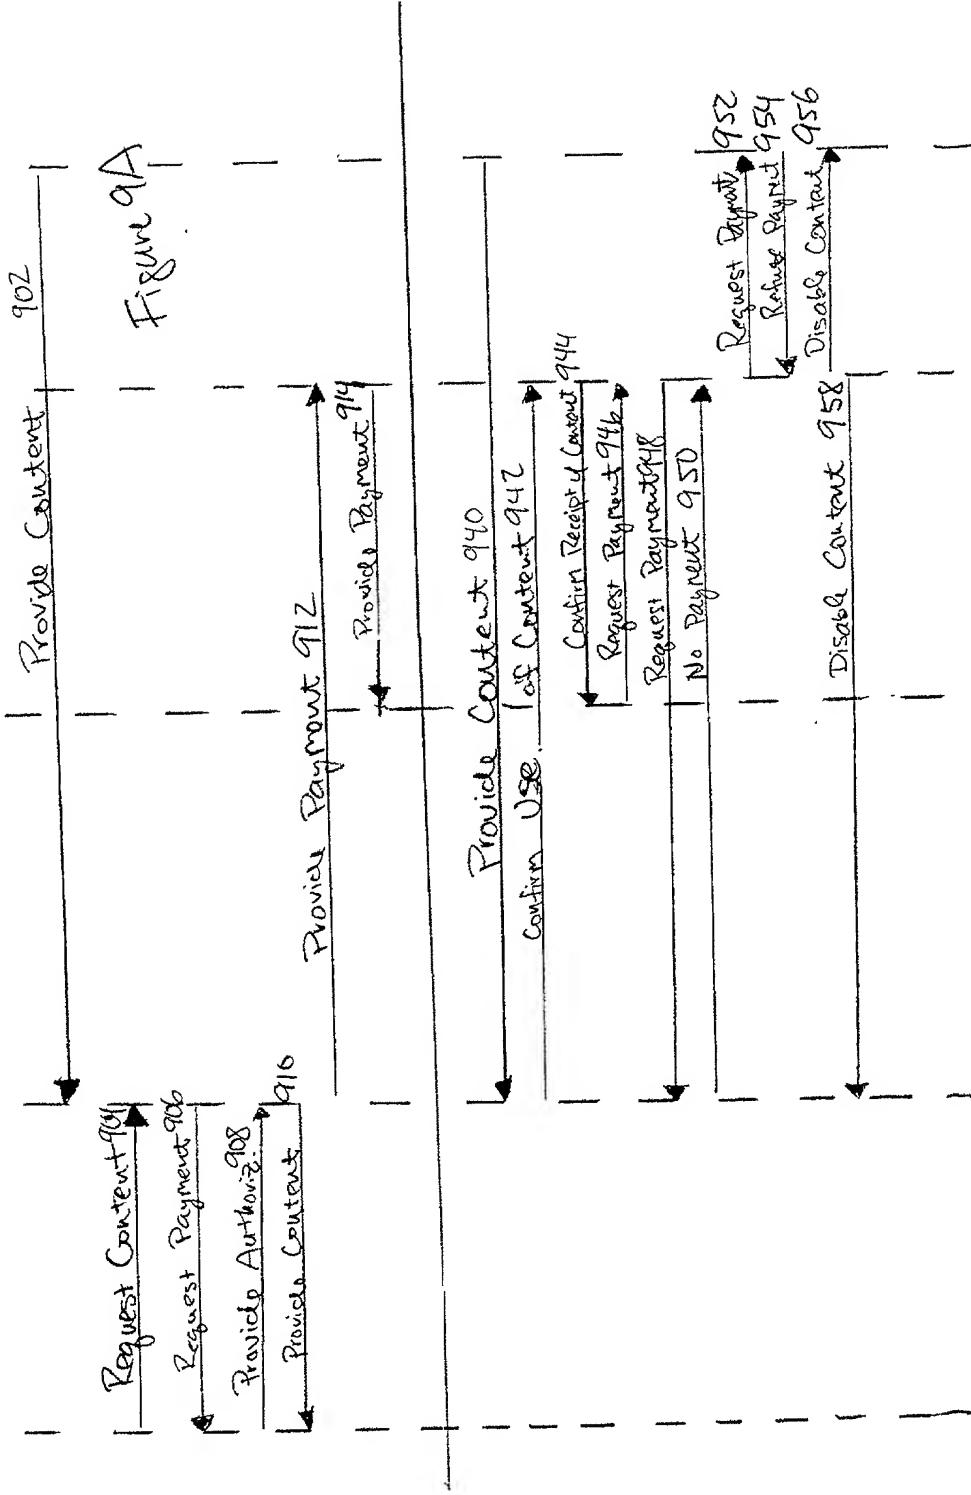 Provide Content 902
Figure 9A
Request Content 904
Request Payment 906
Provide Authoriz. 908
Provide Content 910
Provide Payment 912
Provide Payment 914
Provide Content 940
Confirm Use of Content 942
Confirm Receipt of Content 944
Request Payment 946
Request Payment 948
No Payment 950
Request Payment 952
Refuse Payment 954
Disable Content 956
Disable Content 958